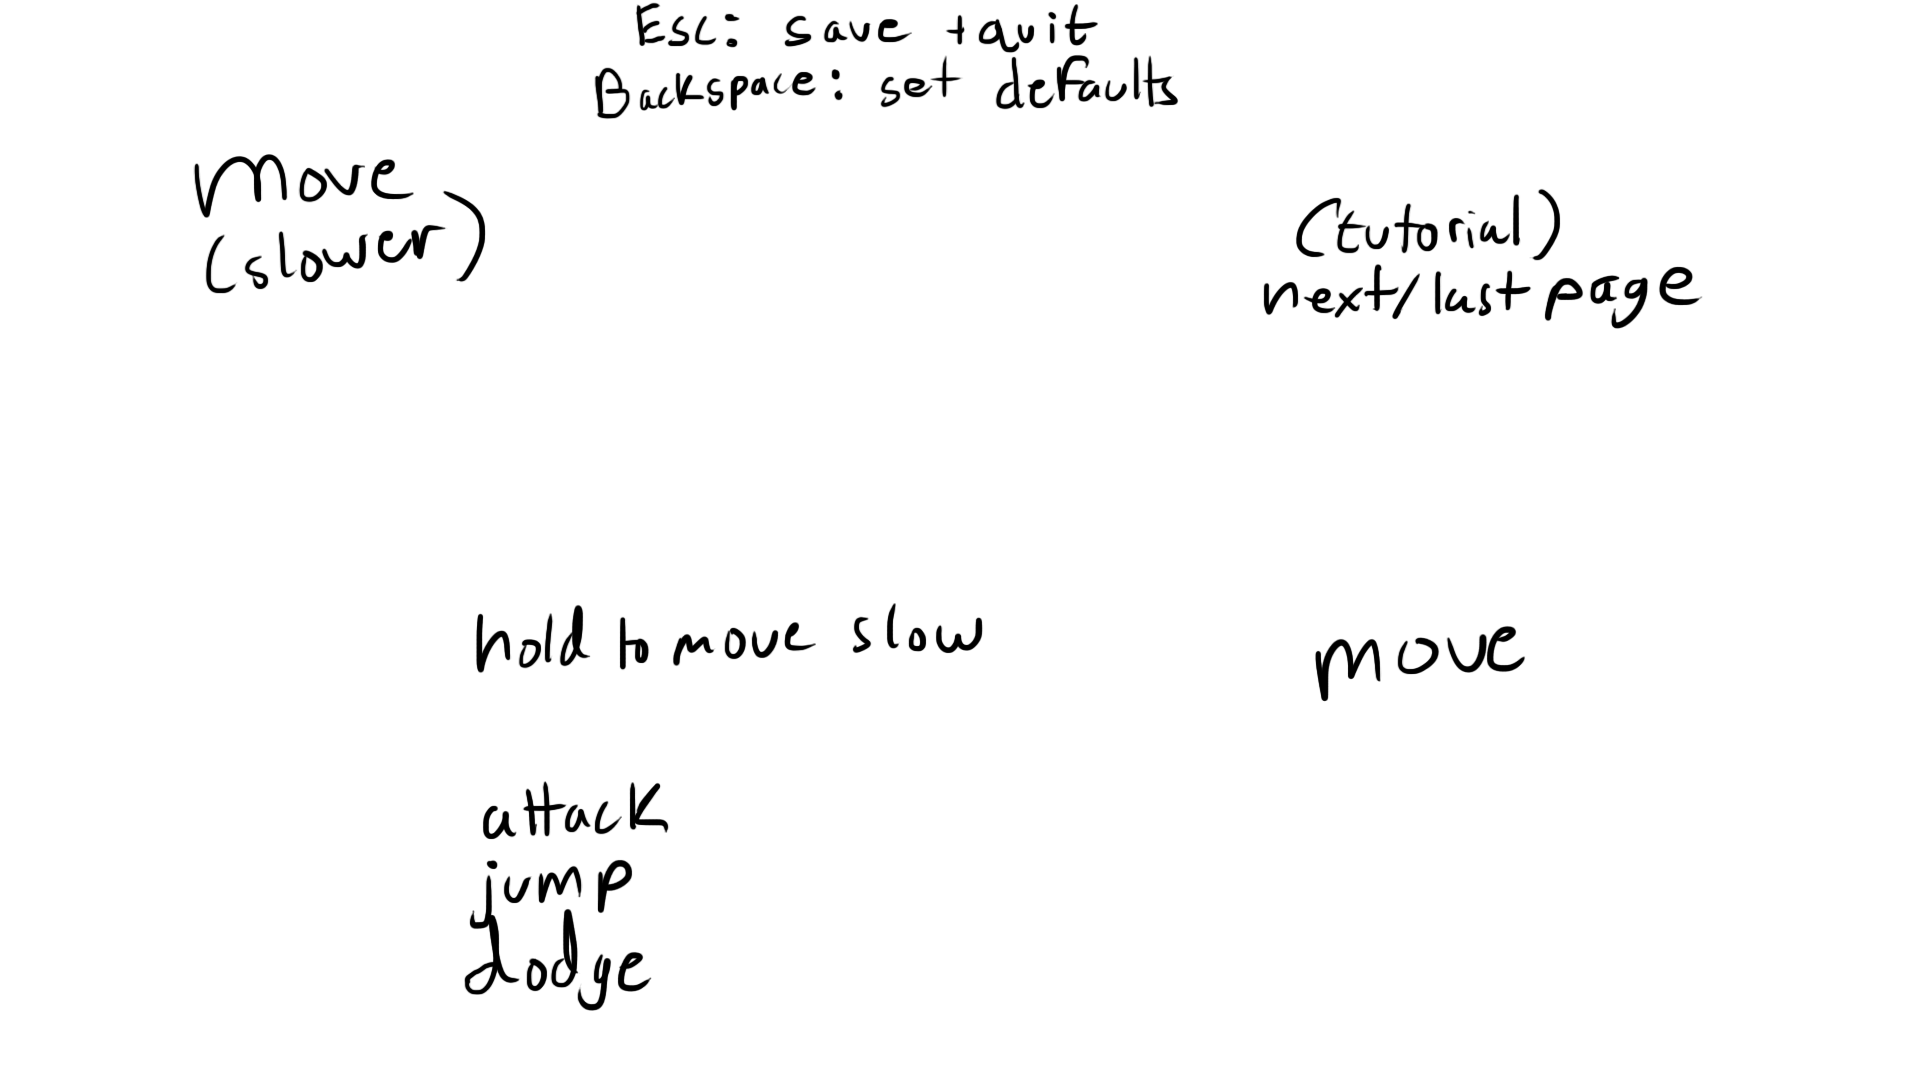 Esc: save + quit
Backspace: set defaults
Move
(slower)
(tutorial)
next/last page
hold to move slow
move
attack
jump
dodge